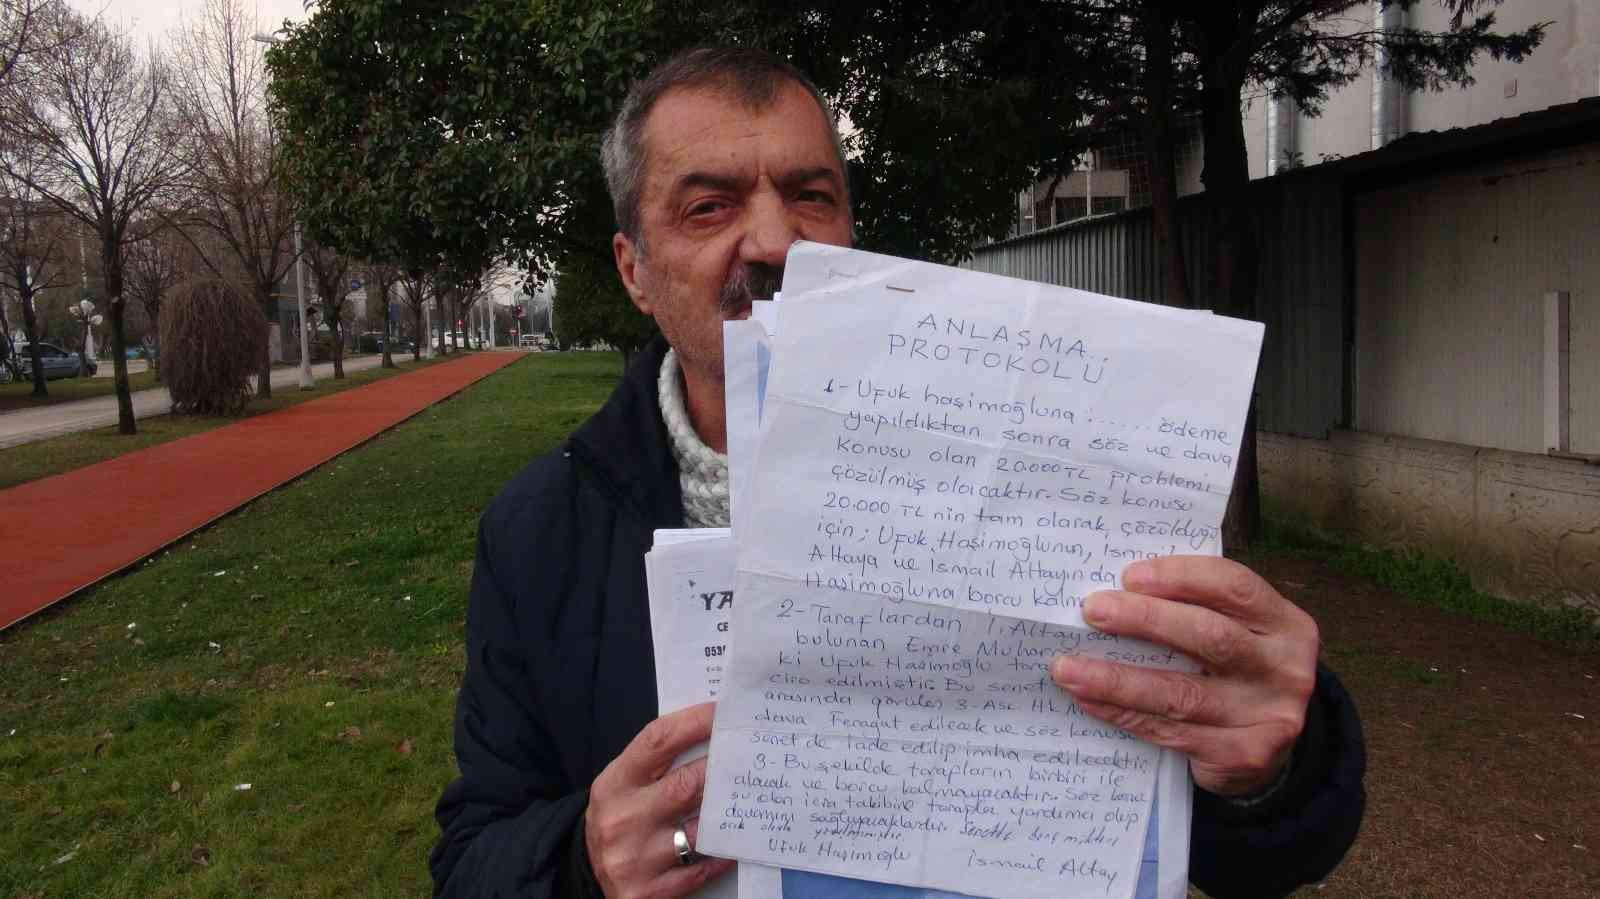 ANLAŞMA
PROTOKOLÜ
1- Ufuk haşimoğluna :...... ödeme
yapıldıktan sonra söz ve dava
konusu olan 20.000 TL problemi
çözülmüş olacaktır. Söz konusu
20.000 TL nin tam olarak çözüldüğü
için; Ufuk Haşimoğlunun, İsmail
Altaya ve İsmail Altayında
Haşimoğluna borcu kalm
2- Taraflardan İ. Altayda
bulunan Emre Muharrem senet
ki Ufuk Haşimoğlu tara
ciro edilmiştir. Bu senet
arasında görülen 3-Asl. Hk M
dava Feragat edilecek ve söz konusu
senet de iade edilip imha edilecektir.
3- Bu şekilde tarafların birbiri ile
alacak ve borcu kalmayacaktır. Söz konu
su olan icra takibine taraflar yardımcı olup
devamını sağlayacaklardır. Senette borç miktarı
açık olarak
Ufuk Haşimoğlu İsmail Altay
YA
CE
0538